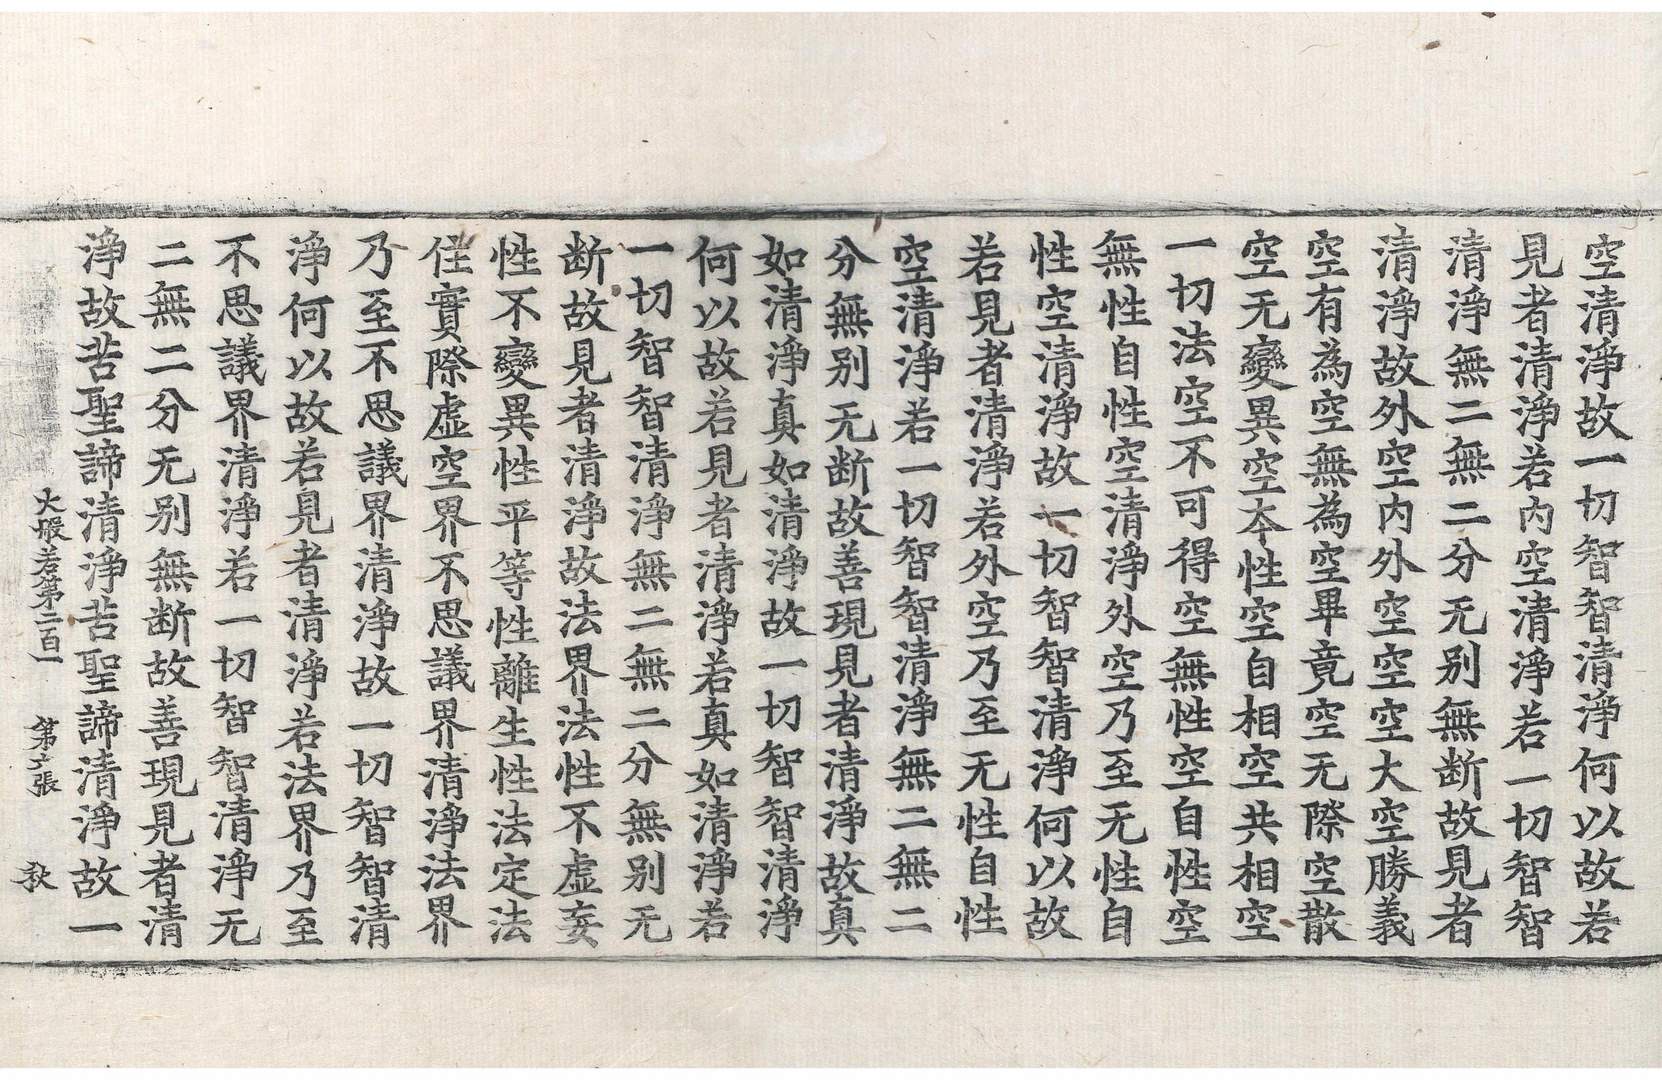 空清淨故一切智智清淨何以故若
見者清淨若內空清淨若一切智智
清淨無二無二分无别無断故見者
清淨故外空內外空空空大空勝義
空有為空無為空畢竟空无際空散
空无變異空本性空自相空共相空
一切法空不可得空無性空自性空
無性自性空清淨外空乃至无性自
性空清淨故一切智智清淨何以故
若見者清淨若外空乃至无性自性
空清淨若一切智智清淨無二無二
分無别无断故善現見者清淨故真
如清淨真如清淨故一切智智清淨
何以故若見者清淨若真如清淨若
一切智智清淨無二無二分無别无
断故見者清淨故法界法性不虛妄
性不變異性平等性離生性法定法
住實際虛空界不思議界清淨法界
乃至不思議界清淨故一切智智清
淨何以故若見者清淨若法界乃至
不思議界清淨若一切智智清淨无
二無二分无别無断故善現見者清
淨故苦聖諦清淨苦聖諦清淨故一
大般若第二百一 第六張 秋